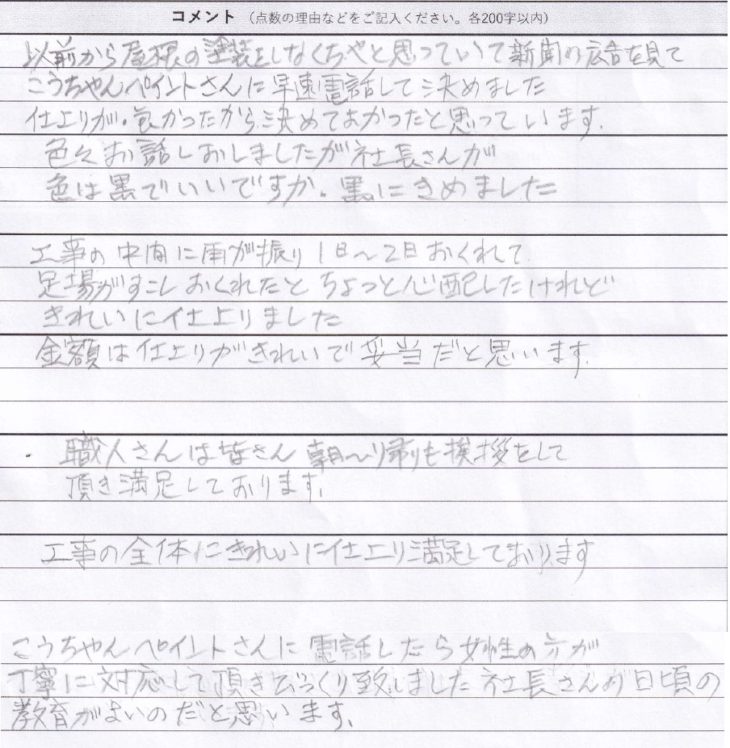 コメント （点数の理由などをご記入ください。各200字以内）
以前から屋根の塗装をしなくちゃと思っていて新聞の広告を見て
こうちゃんペイントさんに早速電話して決めました
仕上りが良かったから決めてよかったと思っています。
色々お話しおしましたが社長さんが
色は黒でいいですか。黒にきめました
工事の中間に雨が振り1日〜2日おくれて
足場がすこしおくれたとちょっと心配したけれど
きれいに仕上りました
金額は仕上りがきれいで妥当だと思います。
職人さんは皆さん朝〜り帰りも挨拶をして
頂き満足しております。
工事の全体にきれいに仕上り満足しております
こうちゃんペイントさんに電話したら女性の方が
丁寧に対応して頂きびっくり致しました社長さんの日頃の
教育がよいのだと思います。